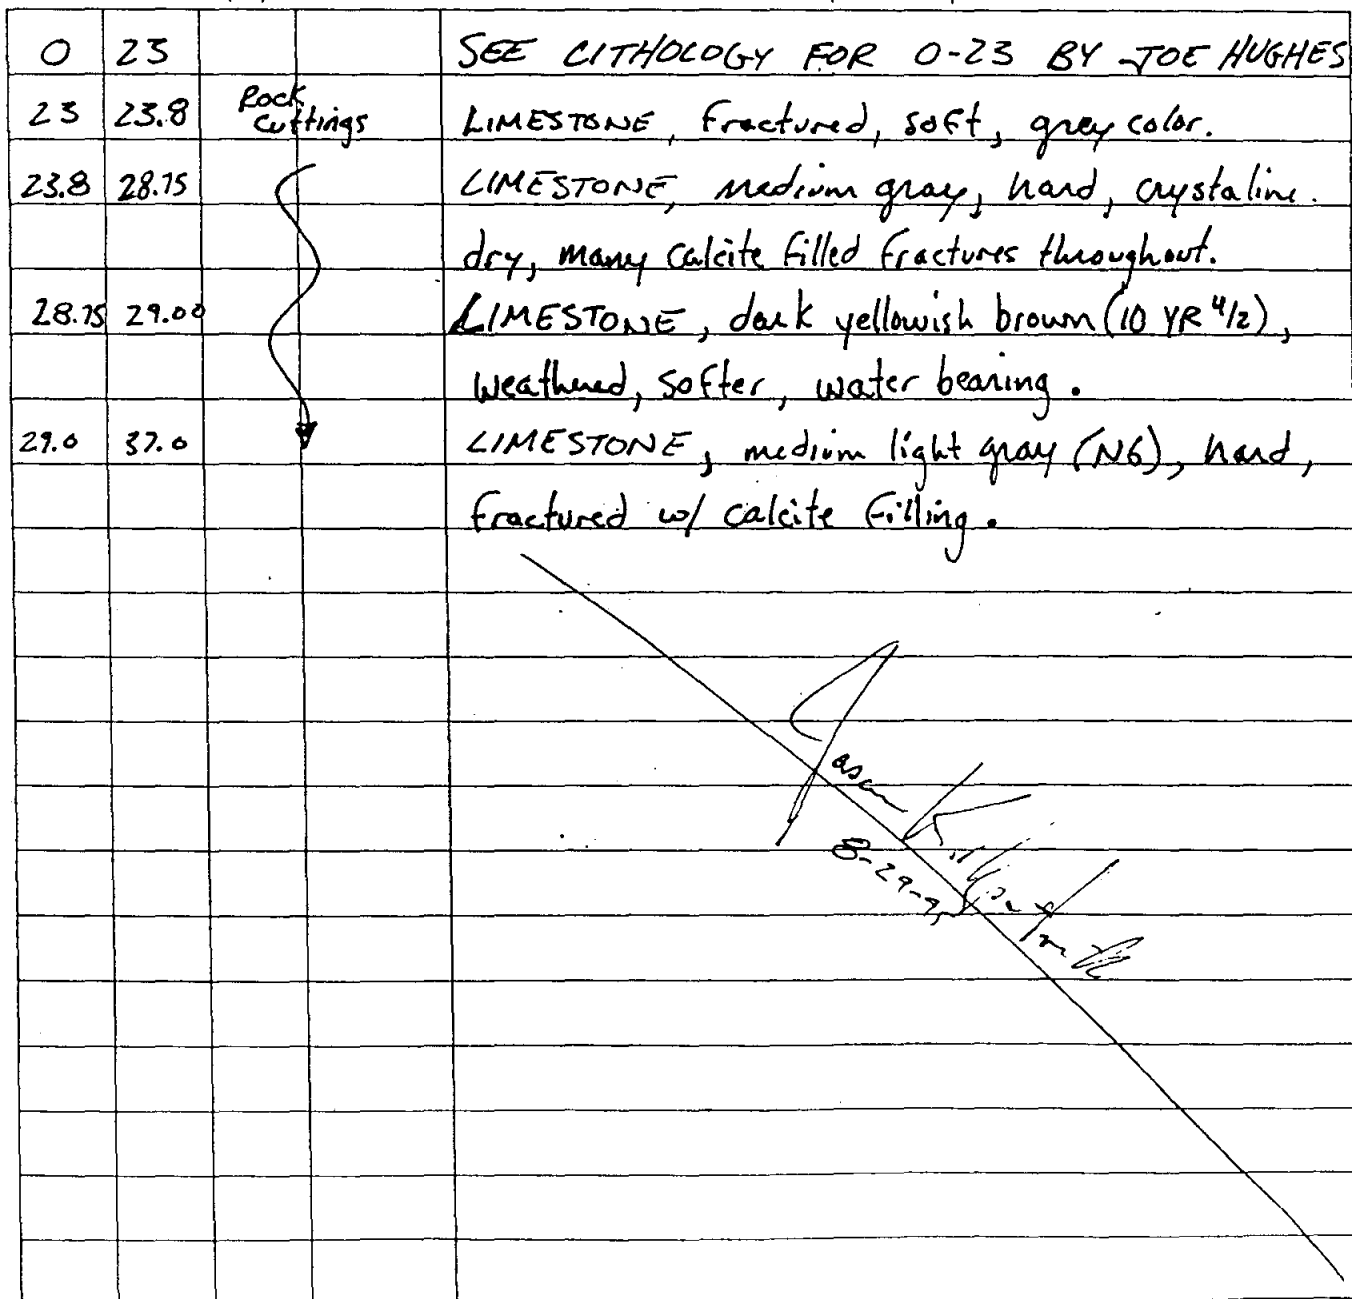 0 23 SEE LITHOLOGY FOR 0-23 BY JOE HUGHES
23 23.8 Rock cuttings LIMESTONE, fractured, soft, grey color.
23.8 28.75 LIMESTONE, medium gray, hard, crystaline.
dry, many calcite filled fractures throughout.
28.75 29.00 LIMESTONE, dark yellowish brown (10 YR 4/2),
weathered, softer, water bearing.
29.0 37.0 LIMESTONE, medium light gray (N6), hard,
fractured w/ calcite filling.
Jason
8-29-